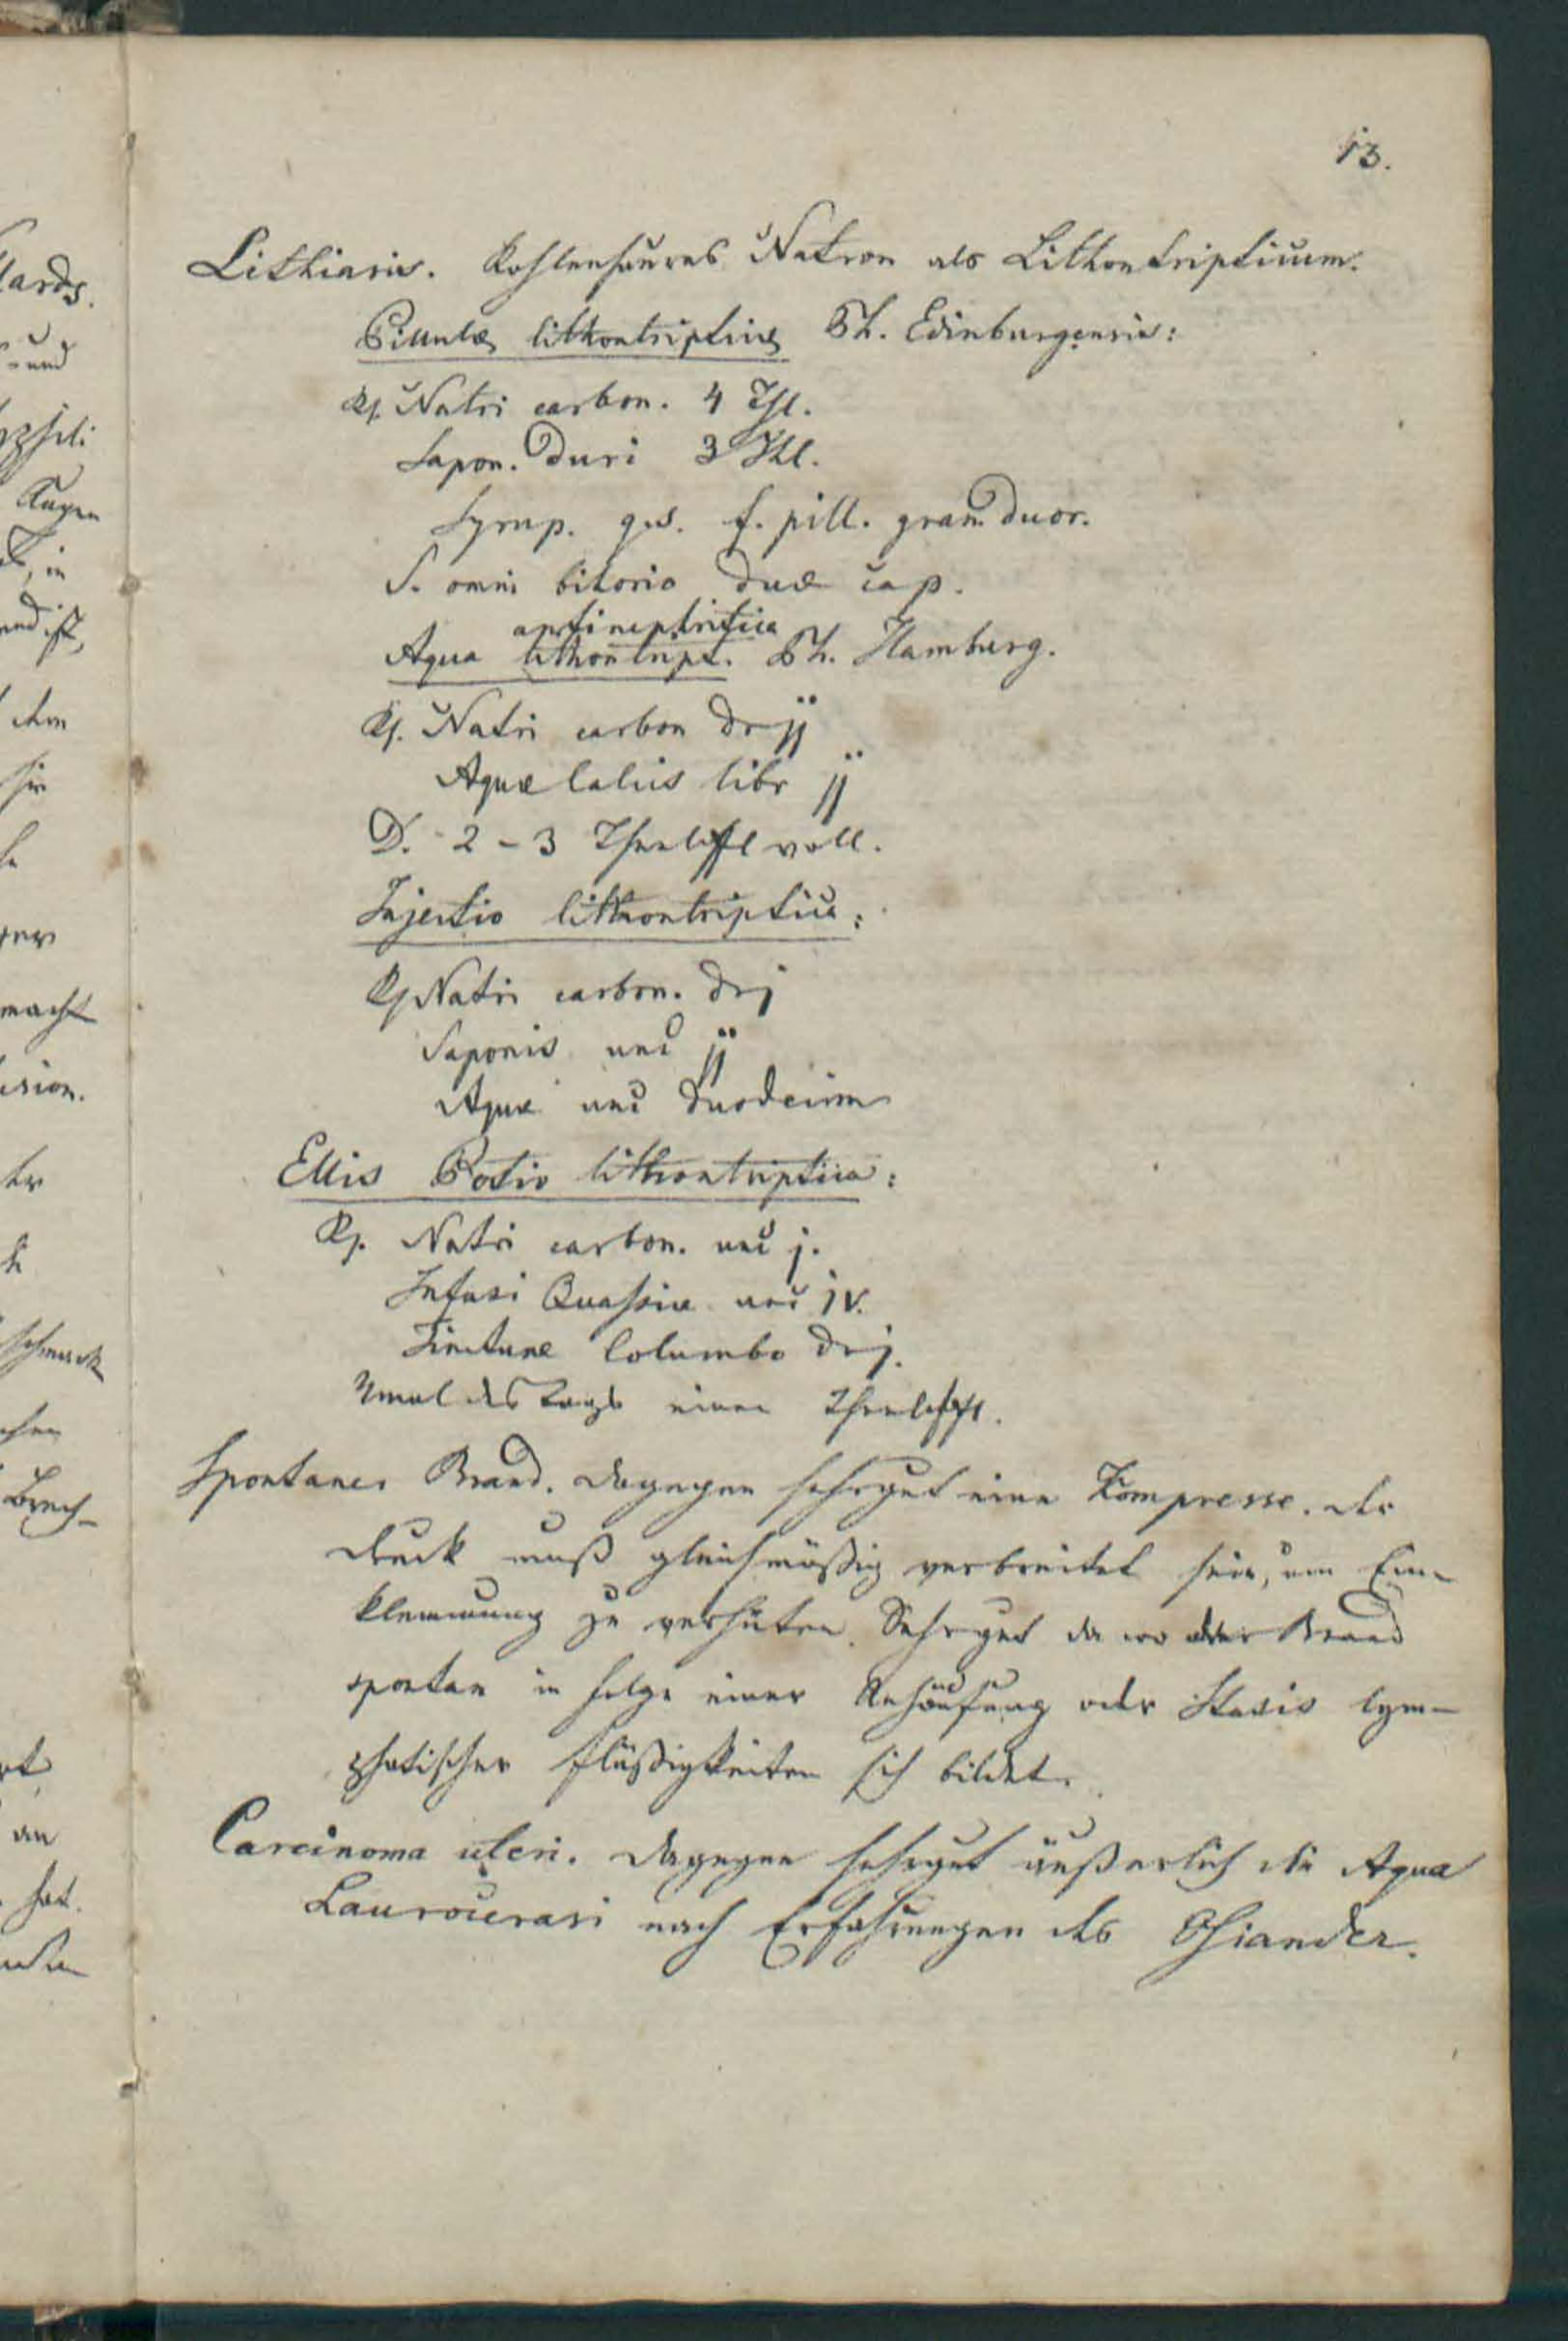 13.
Lithiasis. Kohlensaures Natron als Lithontripticum.
Pillulæ lithontripticæ Ph. Edinburgensis:
Rp. Natri carbon. 4 Thl.
Sapon. duri 3 Thl.
Syrup. q.s. f. pill. gran. duor.
S. omni bihorio duæ cap.
antinephritica
Aqua lithontript. Ph. Hamburg.
Rp. Natri carbon dr jj
Aquæ Calcis libr jj
D. 2 - 3 Theelöffel voll.
Injectio lithontriptica:
Rp Natri carbon. dr j
Saponis unc jj
Aquæ unc duodecim
Ellis Potio lithontriptica:
Rp. Natri carbon. unc j.
Infusi Quassiæ unc jv.
Tincturæ Columbo dr j.
mal des Tags einen Theelöffel.
Spontaner Brand. Dagegen sehr gut eine Kompresse. Der
Druck muß gleichmäßig verbreitet sein, um Ein-
klemmung zu verhüten. Sehr gut da wo der Brand
spontan in Folge einer Anhäufung oder Stasis lym-
phatischer Flüßigkeiten sich bildet.
Carcinoma uteri. Dagegen sehr gut äußerlich die Aqua
Laurocerasi nach Erfahrungen des Osiander.